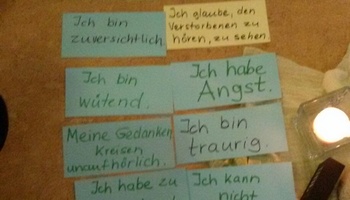 Ich bin
zuversichtlich
Ich glaube, den
Verstorbenen zu
hören, zu sehen
Ich bin
wütend.
Ich habe
Angst.
Meine Gedanken
kreisen
unaufhörlich.
Ich bin
traurig.
Ich habe zu
Ich kann
nicht